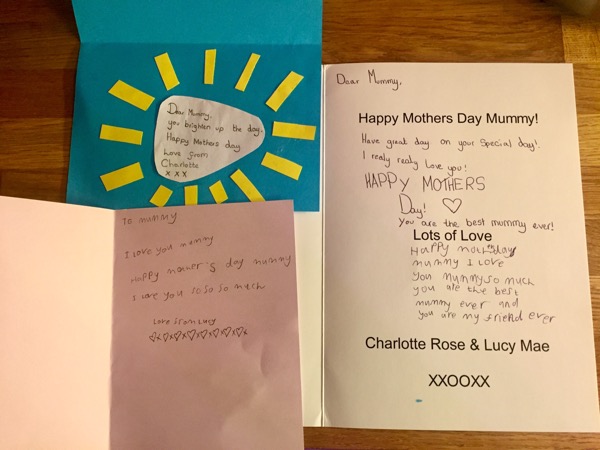 Dear Mummy,
you brighten up the day.
Happy Mothers day
Love from
Charlotte
x x x
To mummy
I love you mummy
Happy mother's day mummy
I love you so so so much
Love from Lucy
Dear Mummy,
Happy Mothers Day Mummy!
Have great day on your Special day!
I realy realy Love you!
HAPPY MOTHERS
Day! ♡
You are the best mummy ever!
Lots of Love
Happy mothersday
mummy I Love
you mummy so much
you are the best
mummy ever and
you are my friend ever
Charlotte Rose & Lucy Mae
XXOOXX